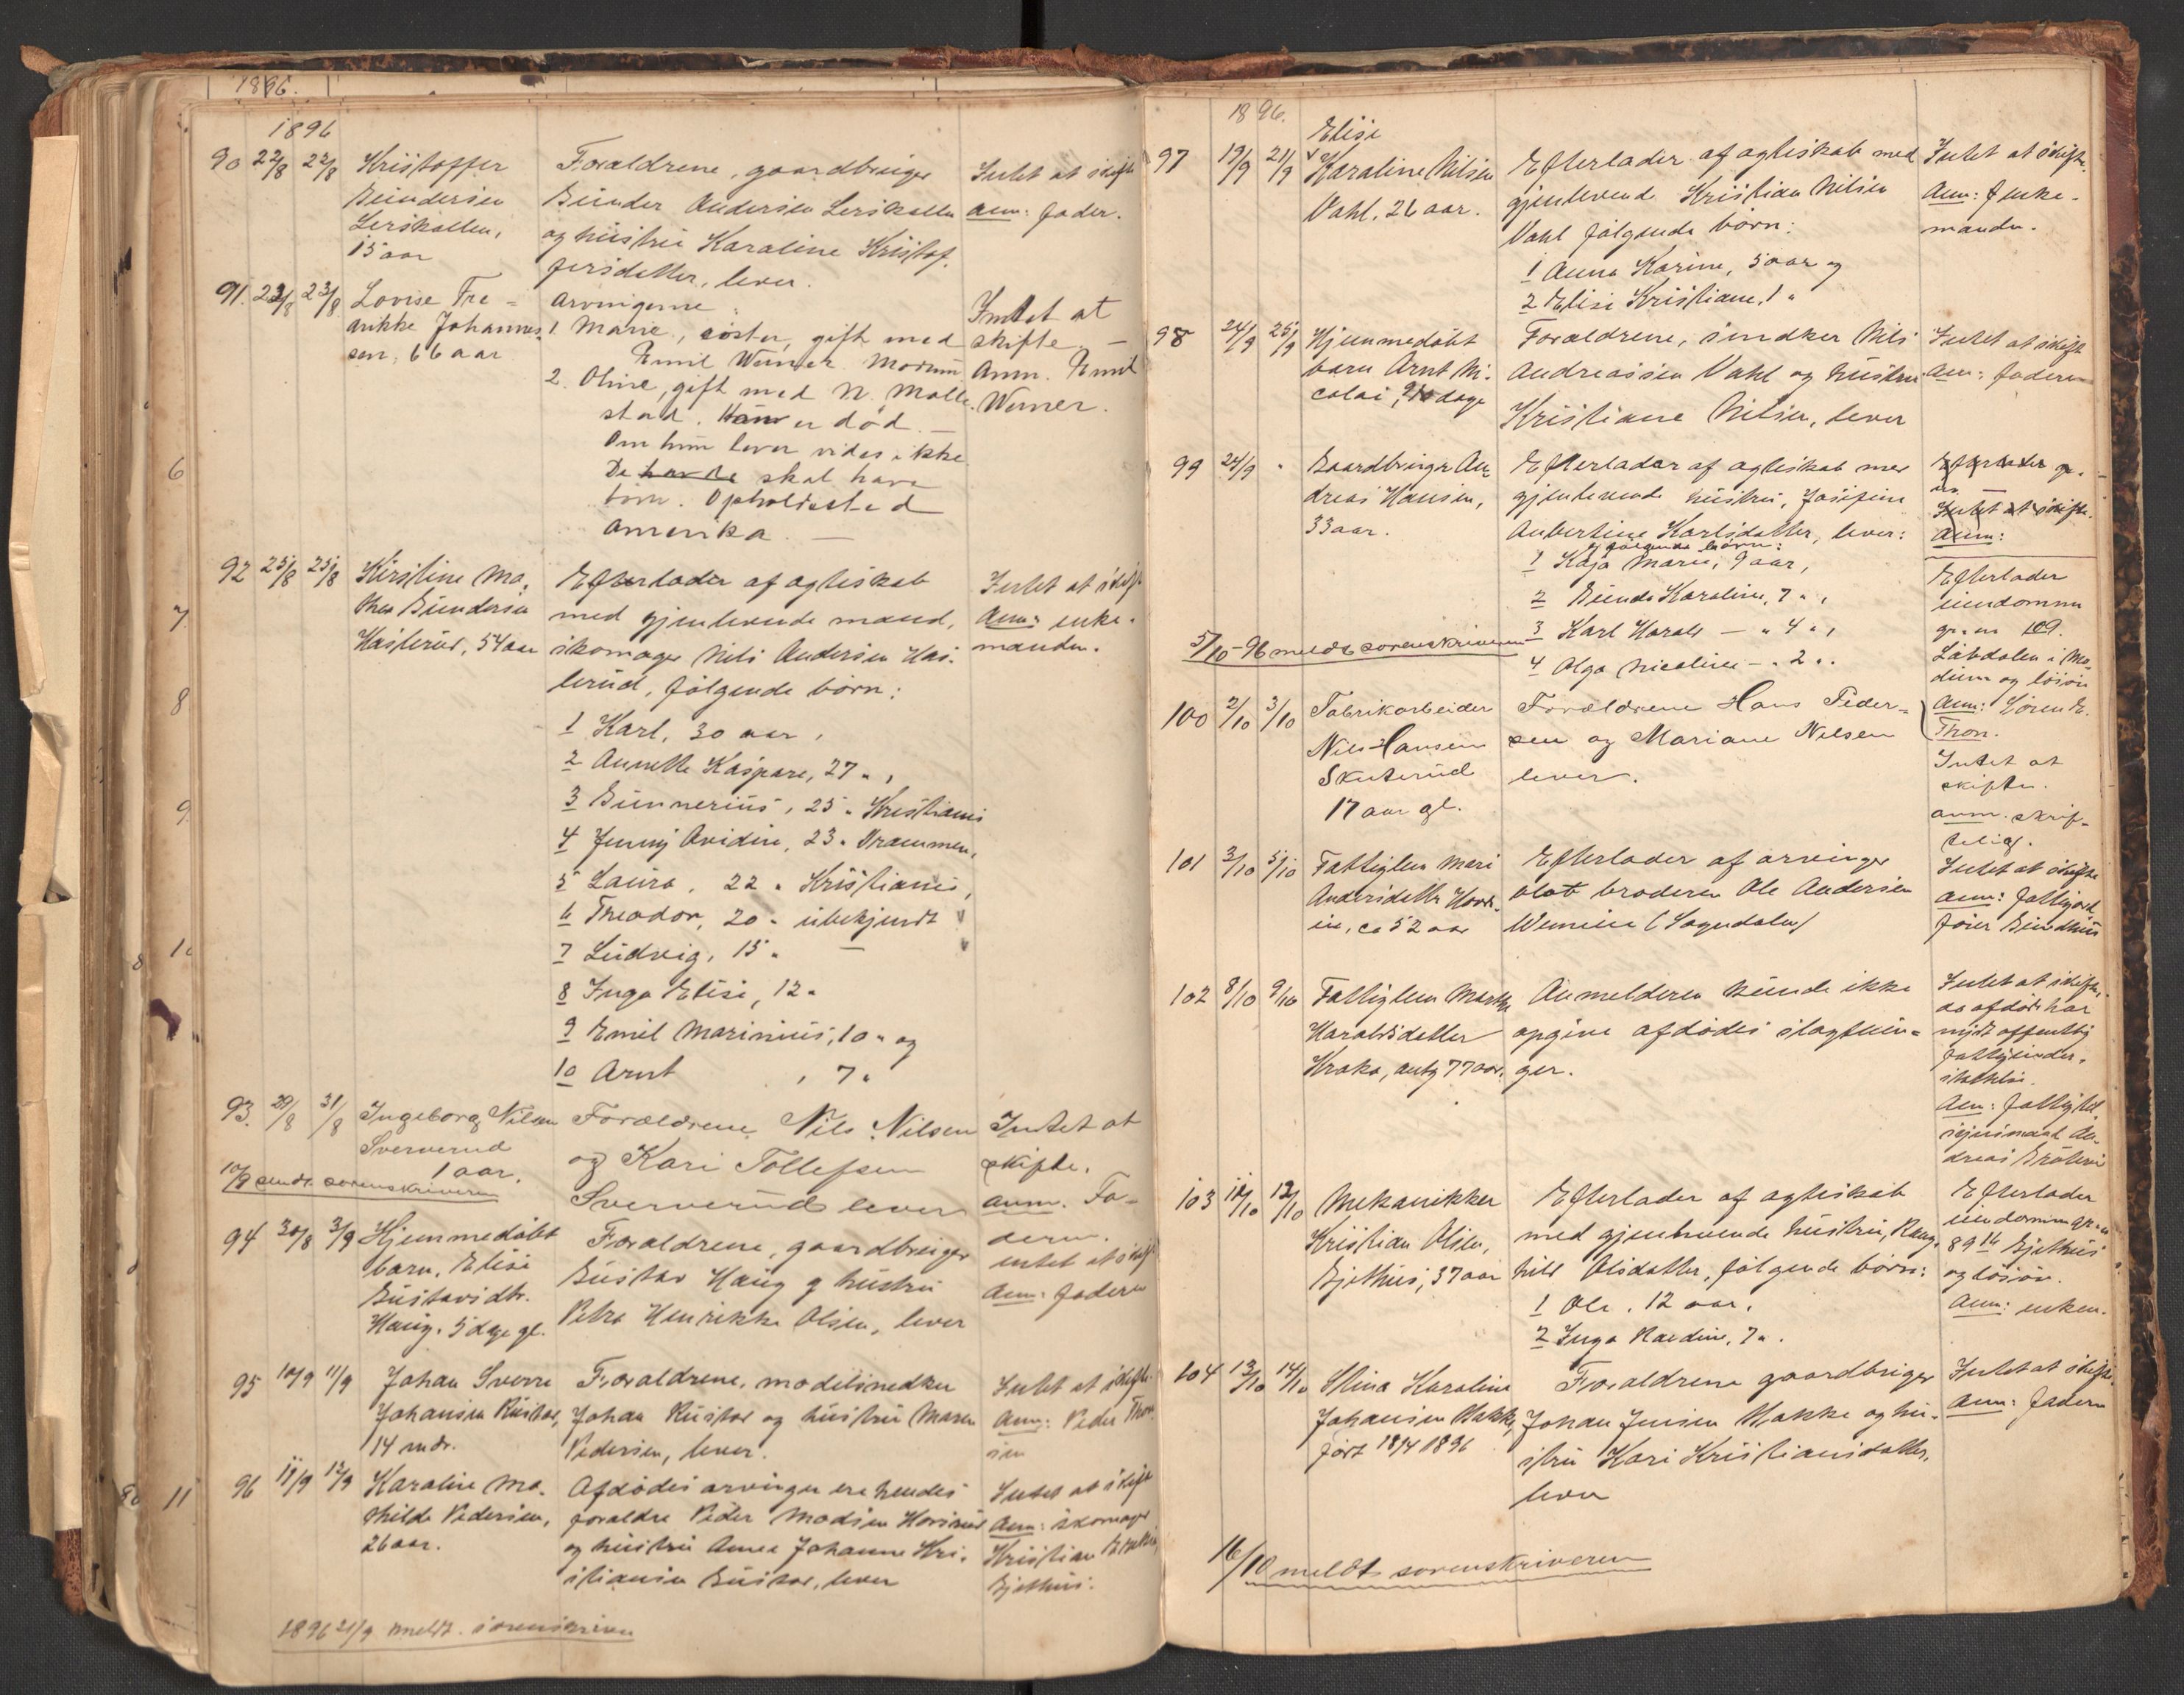 1896.
1896
90 22/8 22/8 Kristoffer Forældrene, gaardbruger Intet at skifte
Gundersen Gunder Andersen Lerskallen anm: fader.
Lerskallen, og hustru Karoline Kristof-
15 aar fersdatter, lever.
91. 23/8 23/8 Lovise Fre= Arvingerne: Intet at
drikke Johannes- 1. Marie, søster, gift med skifte. —
sen, 66 aar Emil Werner Modum Anm. Emil
2. Oline, gift med N. Molle- Werner.
stad. Han er død. —
Om hun lever vides ikke
De havde skal have
børn. Opholdssted
Amerika. —
92 25/8 25/8 Kirstine Ma- Efterlader af ægteskab Intet at skifte
thea Gundersen med gjenlevende mand, Anm: enke-
Haslerud, 54 aar skomager Nils Andersen Has- manden.
lerud, følgende børn:
1 Karl, 30 aar,
2 Annette Kaspare, 27 " ,
3 Gunnerius, 25 " Kristiania
4 Jenny Ovidia, 23 " Drammen,
5 Laura, 22 " Kristiania,
6 Theodor, 20 " ubekjendt
7 Ludvig, 15 " —
8 Inga Elise, 12 "
9 Emil Marinius, 10 " og
10 Arnt , 7 "
93. 29/8 31/8 Ingeborg Nilsen Forældrene Nils Nilsen Intet at
Sververud og Kari Tollefsen skifte.
1 aar. Sververud lever anm. Fa-
10/9 sendt sorenskriveren deren.
94 30/8 3/9 Hjemmedøbt Forældrene, gaardbruger intet at skifte
barn, Elise Gustav Haug og hustru Anm: faderen
Gustavsdtr. Petra Henrikke Olsen, lever
Haug. 5 dage gl.
95 10/9 11/9 Johan Sverre Forældrene, modelsnedker Intet at skifte.
Johansen Rustad, Johan Rustad og hustru Maren Anm: Peder Thor-
14 mdr. Pedersen, lever. sen
96 11/9 12/9 Karoline Ma- Afdødes arvinger ere hendes Intet at skifte
thilde Pedersen, forældre Peder Madsen Anm: skomager
26 aar. og hustru Anne Johanne Kri- Kristian
stiansen lever Gjethus.
1896 21/9 meldt sorenskriveren
1896.
Elise
97 19/9 21/9 Karoline Nilsen Efterlader af ægteskab med Intet at skifte.
Dahl, 26 aar. gjenlevende Kristian Nilsen Anm: Enke-
Dahl følgende børn: manden.
1 Anna Karine, 5 aar og
2 Elise Kristiane, 1 "
98 24/9 25/9 Hjemmedøbt Forældrene, snedker Nils Intet at skifte
barn Arnt Ni- Andreassen Dahl og hustru Anm: faderen
colai, dage Kristiane Nilsen, lever
99 24/9 " Gaardbruger An- Efterlader af ægteskab med Efterlader
dreas Hansen, gjenlevende hustru, Josefine Intet at skifte.
33 aar. Aubertine Karlsdatter, lever: Anm:
og følgende børn:
1 Kaja Marie, 9 aar, Efterlader
2 Gunda Karoline, 7 " , eiendommen
3 Karl Harald — " 4 " , gr.no 109.
5/10-96 meldt sorenskriveren
4 Olga Nicoline — " 2 " . Labdalen i Mo-
dum og løsøre
100 2/10 3/10 Fabrikarbeider Forældrene Hans Peder= Anm: Søren E.
Nils Hansen sen og Mariane Nilsen Thon.
Skuterud lever. Intet at
17 aar gl. skifte.
anm. skrif-
telig.
101 3/10 5/10 Fattiglem Mari Efterlader af arvinger Intet at skifte
Andersdatter blot broderen Ole Andersen anm: fattigfor-
ca 52 aar (Sagndalen)
102 8/10 9/10 Fattiglem Marthe Anmelderen kunde ikke Intet at skifte,
Haraldsdatter opgive afdødes slægtnin= da afdøde har
antg 77 aar. ger. nydt offentlig
fattigunder-
støttelse.
Anm: fattigtil-
synsmand An-
dreas
103 10/10 12/10 Mekanikker Efterlader af ægteskab Efterlader
Kristian Olsen, med gjenlevende hustru, Rang- eiendommen gr.no
Gjethus, 37 aar hild Olsdatter, følgende børn: 89 16 Gjethus
1 Ole, 12 aar, og løsøre.
2 Inga Ragndine, 7 " . Anm: enken.
104 13/10 14/10 Stina Karoline Forældrene gaardbruger Intet at skifte
Johansen Hakke, Johan Jensen Hakke og hu- Anm: faderen
født 18/4 1896 stru Kari Kristiansdatter,
lever
16/10 meldt sorenskriveren